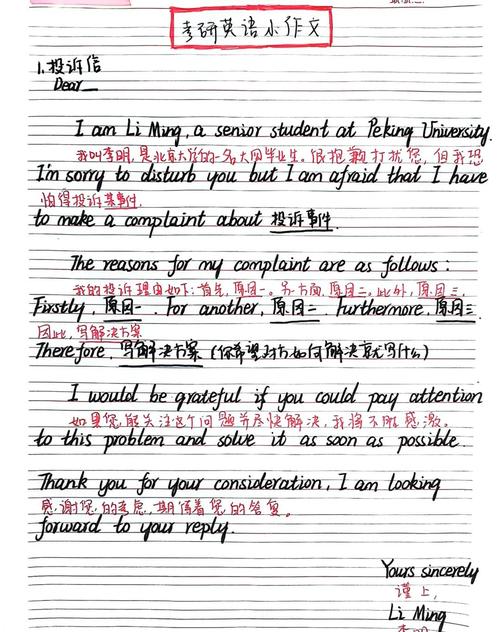 考研英语小作文
1.投诉信
Dear__
I am Li Ming, a senior student at Peking University.
我叫李明,是北京大学的一名大四毕业生。很抱歉打扰您,但我恐
I'm sorry to disturb you but I am afraid that I have
怕得投诉某事件.
to make a complaint about 投诉事件.
The reasons for my complaint are as follows:
我的投诉理由如下:首先,原因一。另方面,原因二,此外,原因三.
Firstly, 原因一. For another, 原因二. Furthermore, 原因三.
因此,写解决方案
Therefore, 写解决方案(你希望对方如何解决就写什么)
I would be grateful if you could pay attention
如果您能关注这个问题并尽快解决,我将不胜感激。
to this problem and solve it as soon as possible.
Thank you for your consideration, I am looking
感谢您的考虑,期待着您的答复。
forward to your reply.
Yours sincerely
谨上,
Li Ming
李明